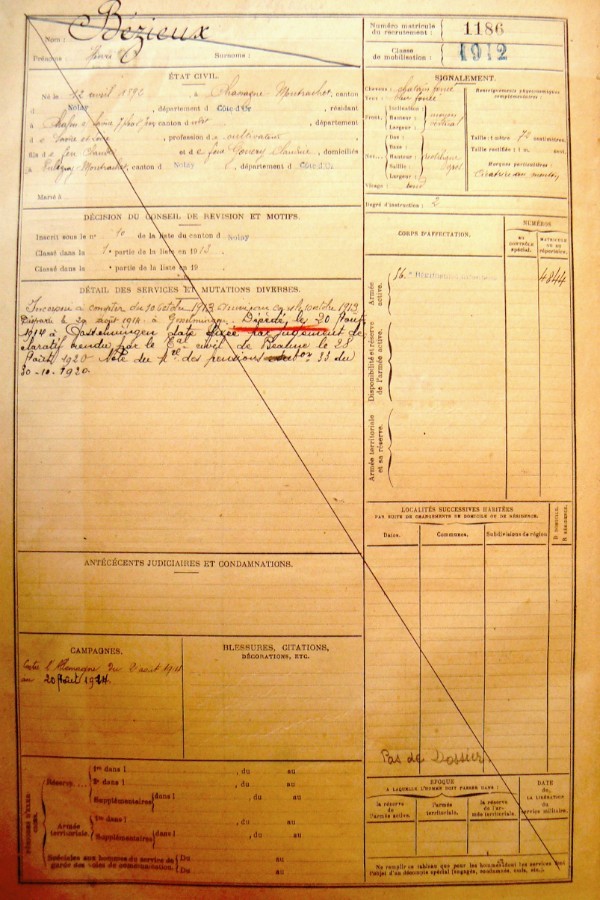 Nom : Bézieux
Prénoms : Surnoms :
Numéro matricule du recrutement : 1186
Classe de mobilisation : 1912
ÉTAT CIVIL.
Né le 12 avril à Chassagne Montrachet, canton
d Nolay, département d Côte d'Or, résidant
à canton d département
d Saône et Loire, profession de cultivateur
fils d e feu Claude et d e feue Claudine, domiciliés
à Puligny-Montrachet, canton d Nolay, département d Côte d'Or.
Marié à
SIGNALEMENT.
Cheveux : châtain foncé
Yeux : foncé
Front. Inclinaison :
Hauteur : moyen
Largeur : vertical
Nez. Dos : rectiligne
Hauteur :
Saillie : gros
Largeur :
Visage :
Renseignements physionomiques complémentaires :
Taille : 1 mètre 70 centimètres.
Taille rectifiée : 1 m. cent.
Marques particulières :
Cicatrice au menton
Degré d'instruction : 2
DÉCISION DU CONSEIL DE RÉVISION ET MOTIFS.
Inscrit sous le n° 10 de la liste du canton d Nolay
Classé dans la 1e partie de la liste en 1913.
Classé dans la e partie de la liste en 19
DÉTAIL DES SERVICES ET MUTATIONS DIVERSES.
Incorporé à compter du 10 octobre 1913 arrivé au corps le 10 octobre 1913
Disparu le 20 août 1914 à Décédé le 20 Août
1914 à date fixée par jugement dé
claratif rendu par le Tal civil de Beaune le 28
Août 1920 Note du Mre des pensions 33 du
30-10-1920
CORPS D'AFFECTATION.
NUMÉROS
AU CONTRÔLE SPÉCIAL.
MATRICULE OU AU RÉPERTOIRE.
Armée active.
56e 4844
Disponibilité et réserve de l'armée active.
Armée territoriale et sa réserve.
LOCALITÉS SUCCESSIVES HABITÉES
PAR SUITE DE CHANGEMENTS DE DOMICILE OU DE RÉSIDENCE.
Dates. Communes. Subdivisions de région D. DOMICILE. R. RÉSIDENCE.
ANTÉCÉDENTS JUDICIAIRES ET CONDAMNATIONS.
CAMPAGNES.
Contre l'Allemagne du 2 août 1914
au 20 Août 1914.
BLESSURES, CITATIONS,
DÉCORATIONS, ETC.
Pas de Dossier.
PÉRIODES D'EXERCICES.
Réserve. 1re dans l , du au
2e dans l , du au
Supplémentaires dans l , du au
Armée territoriale. 1re dans l , du au
Supplémentaires dans l , du au
Spéciales aux hommes du service de
garde des voies de communication. Du au
Du au
ÉPOQUE
À LAQUELLE L'HOMME DOIT PASSER DANS :
la réserve de l'armée active. l'armée territoriale. la réserve de l'armée territoriale.
DATE de LA LIBÉRATION du service militaire.